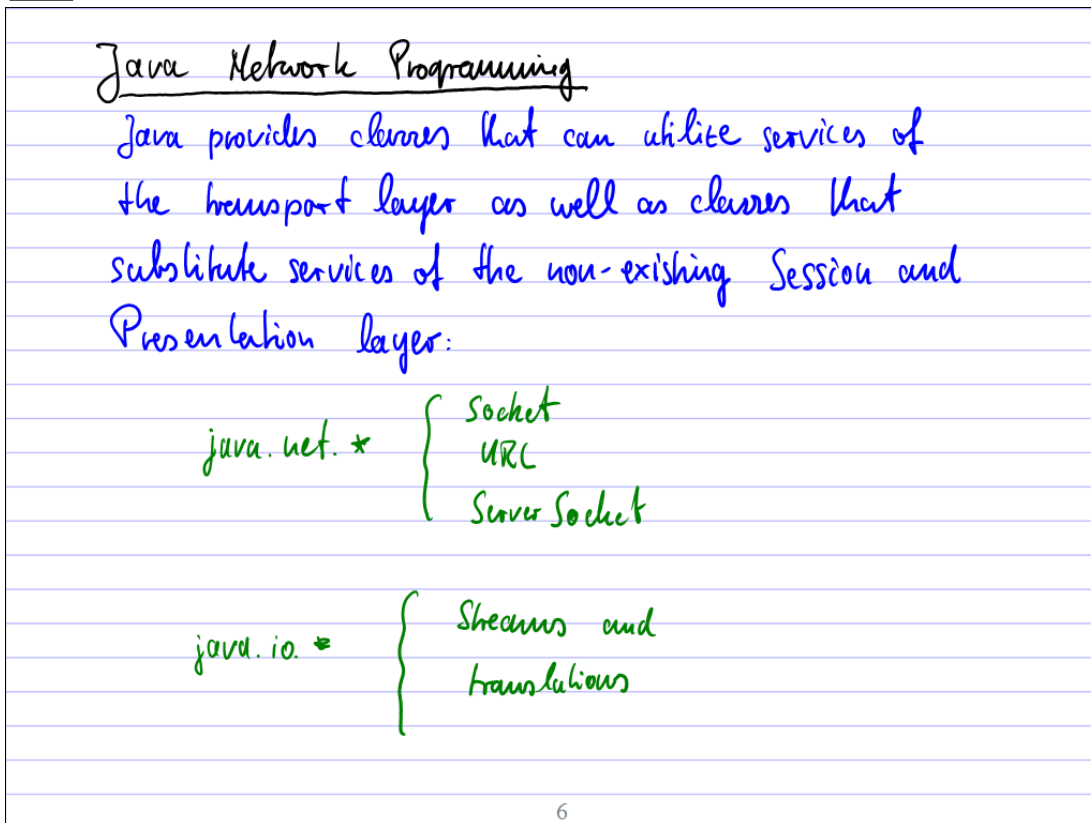 Java Network Programming
Java provides classes that can utilize services of
the transport layer as well as classes that
substitute services of the non-existing Session and
Presentation layer:
java.net.*
Socket
URL
ServerSocket
java.io.*
Streams and
translations
6